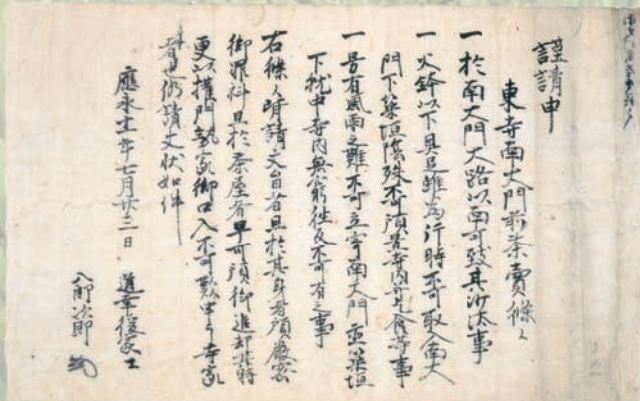 謹請申
東寺南大門前茶賣條々
一於南大門大路以南可致其沙汰事
一火鉢以下具足雖為片時不可取入南大
門下築垣陰殊不可預置寺内乞食等事
一号有風雨之難不可立寄南大門並築垣
下就中寺内無窮往反不可有之事
右條々背請文自者且於其身者預嚴密
御罪科且於茶屋者早可預御追却於時
更以權門勢家御口入不可歎申寺家
者也仍請文状如件
應永十一年七月廿三日 道幸後家
八郎次郎